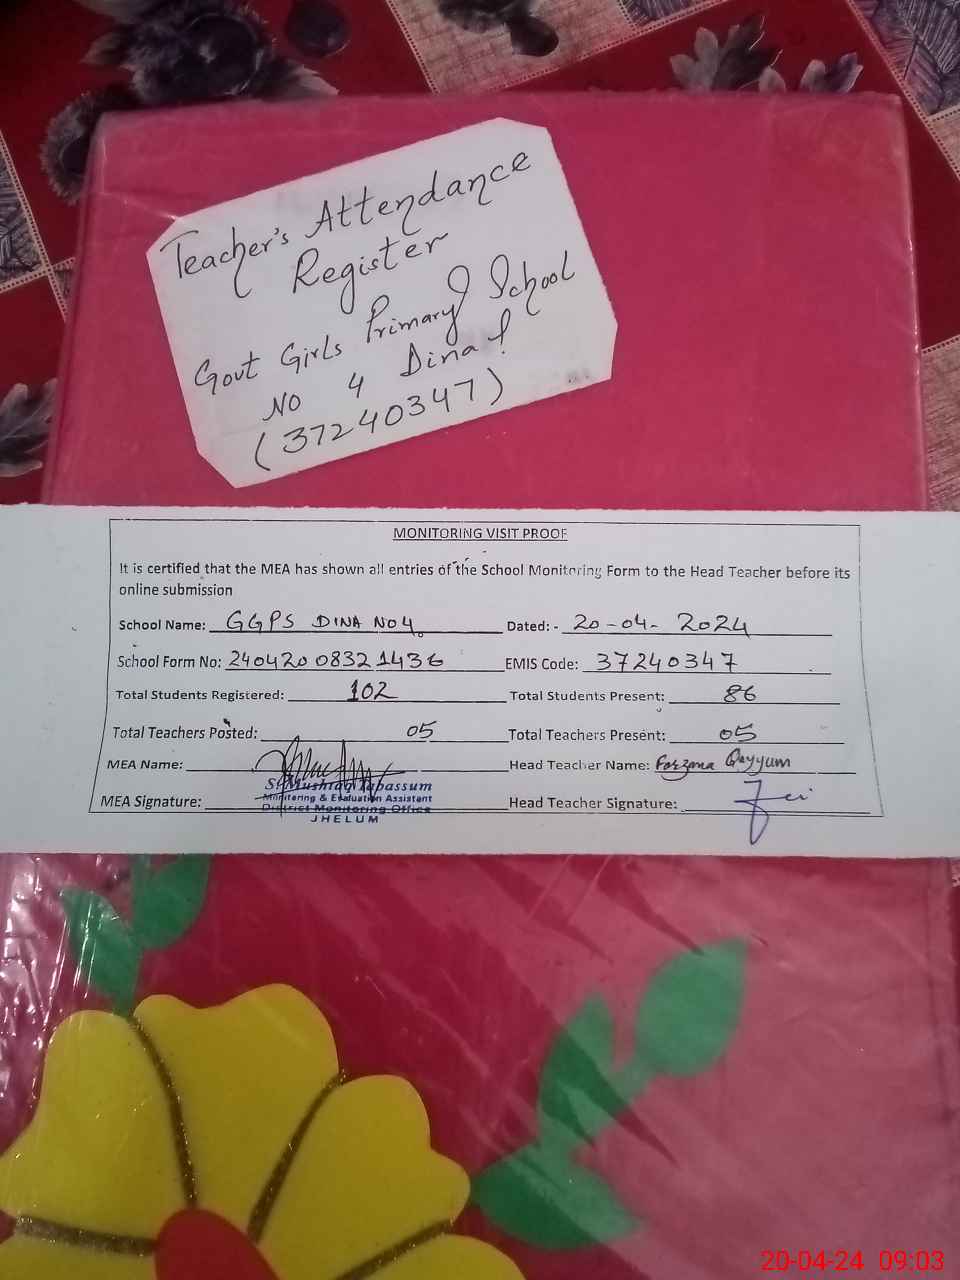 Teacher's Attendance
Register
Govt Girls Primary School
No 4 Dina
(37240347)
MONITORING VISIT PROOF
It is certified that the MEA has shown all entries of the School Monitoring Form to the Head Teacher before its
online submission
School Name: GGPS DINA NO 4 Dated: - 20-04-2024
School Form No: 24042008321436 EMIS Code: 37240347
Total Students Registered: 102 Total Students Present: 86
Total Teachers Posted: 05 Total Teachers Present: 05
MEA Name: Head Teacher Name: Farzana Qayyum
Mushtaq Tabassum
Monitoring & Evaluation Assistant
MEA Signature: Head Teacher Signature:
District Monitoring Office
JHELUM
20-04-24 09:03